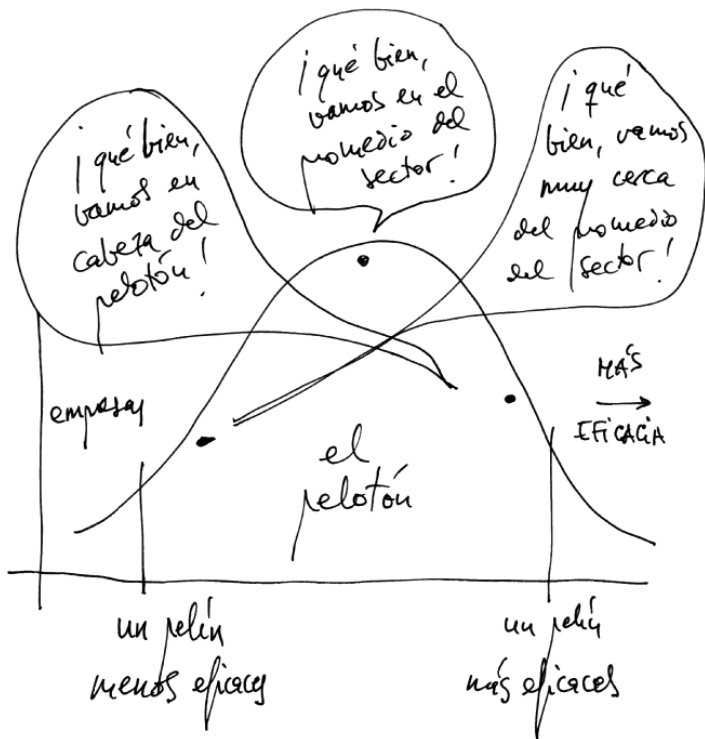 ¡qué bien,
vamos en
cabeza del
pelotón!
¡qué bien,
vamos en el
promedio del
sector!
¡qué
bien, vamos
muy cerca
del promedio
del sector!
empresas
el
pelotón
MÁS
EFICACIA
un pelín
menos eficaces
un pelín
más eficaces